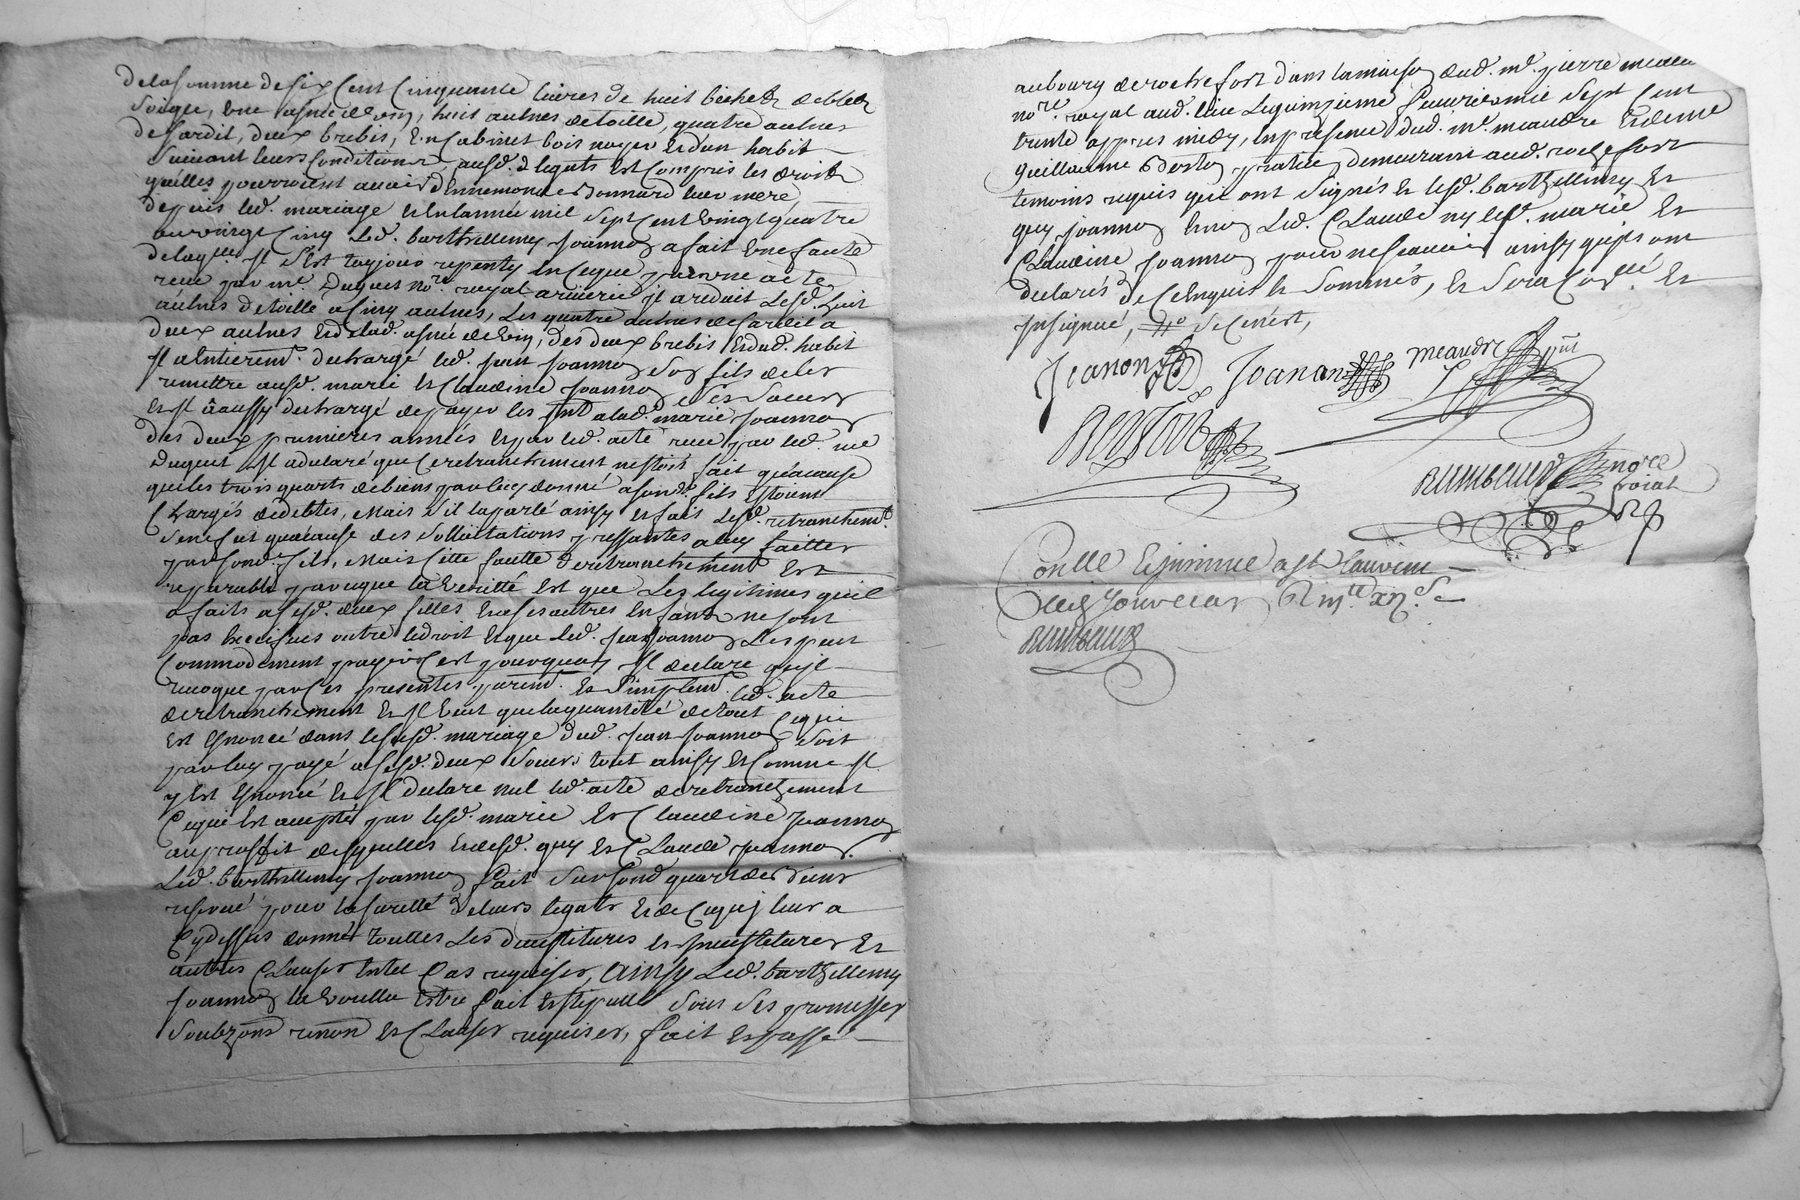 de la somme de six Cent Cinquante livres de huit bichets de bled
seigle, une asnée de vin, huit aulnes de toille, quatre aulnes
de sardit, deux brebis, un Cabinet bois noyer et d'un habit
suivant leurs Conditions auxd. legats est Compris les droits
qu'elles pourroient avoir d'Ennemonde donnard leur mere,
depuis led. mariage et En l'année mil sept Cent vingt quatre
ou vingt Cinq led. barthellemy Joannon a fait une faute
de laquelle Il s'est toujours repenty En ce que par une acte
receu par me. Duguet nore. royal il areduit lesd. huit
aulnes de toille a Cinq aulnes, les quatre aulnes de sardit a
deux aulnes et de lad. asnée de vin, des deux brebis et dud. habit
Il a Entierement. decharge led. jean Joannon son fils de les
remettre ausd. marie et Claudine Joannon ses soeurs
et Il l'a aussy decharge de payer les jnt a lad. marie Joannon
des deux premieres années et par led. acte receu par led. me
Duguet Il a declaré que Ce retranchement n'estoit fait qu'acause
que les trois quarts de biens par luy donné a sond. fils Estoient
Chargés de debtes, Mais s'il la parlé ainsy et fait lesd. retranchemt.
Ce ne fut qu'acause des sollicitations pressantes a luy faittes
par sond. fils, Mais Cette faute de retranchement Est
reparable parceque la verité est que les legitimes qu'il
a faits a sesd. deux filles et a ses autres Enfants ne sont
pas Excessives outre le droit et que led. jean Joannon les peut
Commodement payer C'est pourquoy Il declare qu'il
revoque par Ces presentes purem. et simplem. led. acte
de retranchement et Il veut que la quantité de tout Ce qui
est Enoncé dans lesusd. mariage dud. jean Joannon soit
par luy payé a sesd. deux soeurs tout ainsy et Comme Il
y est Enoncé et Il declare nul led. acte de retranchement
Ce qui est accepté par lesd. marie et Claudine Joannon
au proffit desquelles et desd. guy et Claude Joannon.
Led. barthellemy Joannon fait sur sond. quart des biens
reservé pour la sureté de leurs legats et de Ce qu'il leur a
Cy dessus donné touttes les devestitures et Investitures et
autres Clauses En tel Cas requises, Ainsy led. barthellemy
Joannon l'a voullu Estre fait et stipullé sous ses promesses
soubzons renon et Clauses requises, fait et passé
au bourg de rochefort dans la maison dud. me. pierre meaudre
nore. royal aud. lieu le quinzieme feuvrier mil sept Cent
trente apprès midy, En presence dud. me. meaudre et de me
guillaume Berton praticien demeurant aud. rochefort
temoins requis qui ont signés et lesd. barthellemy et
guy Joannon Et non led. Claude ny lesd. marie et
Claudine Joannon pour ne sçavoir ainsy qu'ils ont
declarés de Ce Enquis et sommés, Et sera Con.llé et
Insignué,
Joanon Joanon meaudre pnt
Berton
Rimbaud nore
roial
Con.lle
Rimbaud